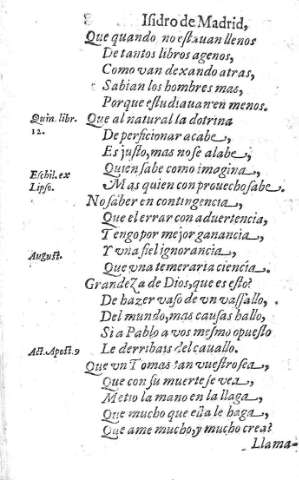 8 Isidro de Madrid,
Que quando no estauan llenos
De tantos libros agenos,
Como van dexando atras,
Sabian los hombres mas,
Porque estudiauan en menos.
Quin. libr. 12.
Que al natural la dotrina
De perficionar acabe,
Es justo, mas no se alabe,
Quien sabe como imagina,
Eschil. ex Lipso.
Mas quien con prouecho sabe.
No saber en contingencia,
Que el errar con aduertencia,
Tengo por mejor ganancia,
August.
Y vna fiel ignorancia,
Que vna temeraria ciencia.
Grandeza de Dios, que es esto?
De hazer vaso de vn vassallo,
Del mundo, mas causas hallo,
Si a Pablo a vos mesmo opuesto
Act. Apost. 9
Le derribais del cauallo.
Que vn Tomas tan vuestro sea,
Que con su muerte se vea,
Metio la mano en la llaga,
Que mucho que ella le haga,
Que ame mucho, y mucho crea?
Llama-